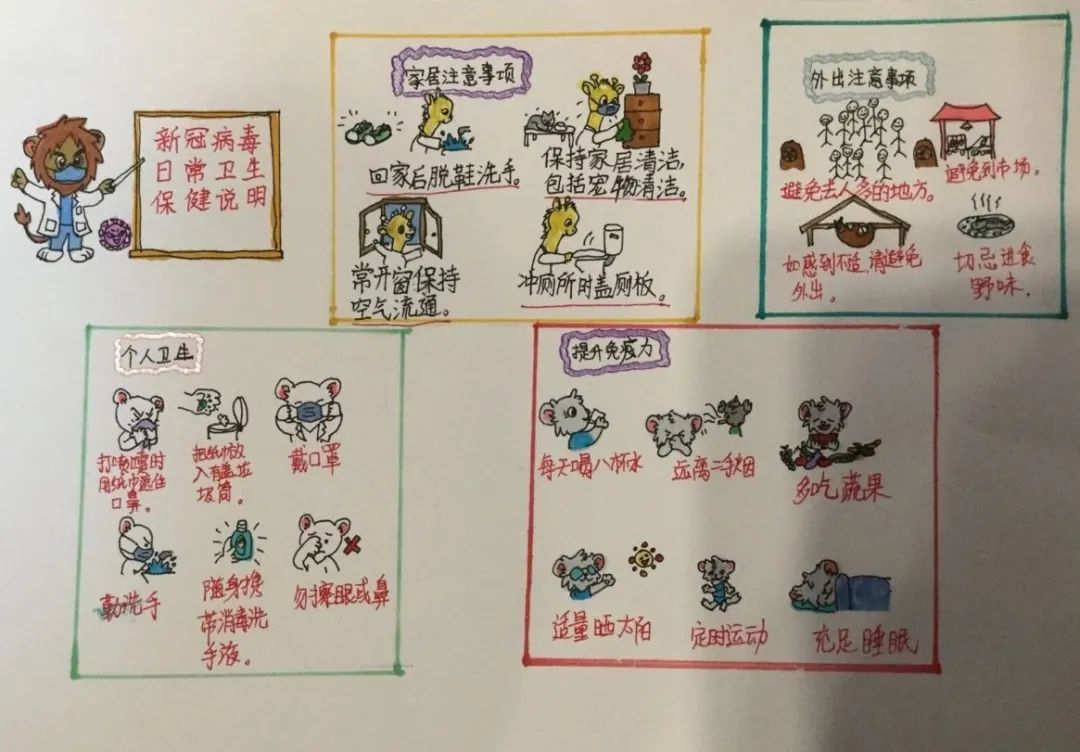 新冠病毒
日常卫生
保健说明
家居注意事项
回家后脱鞋洗手。
保持家居清洁，
包括宠物清洁。
常开窗保持
空气流通。
冲厕所时盖厕板。
外出注意事项
避免去人多的地方。
避免到市场。
如感到不适，请避免
外出。
切忌进食
野味。
个人卫生
打喷嚏时
用纸巾遮住
口鼻。
把纸巾放
入有盖垃
圾筒。
戴口罩
勤洗手
随身携
带消毒洗
手液。
勿擦眼或鼻
提升免疫力
每天喝八杯水
远离二手烟
多吃蔬果
适量晒太阳
定时运动
充足睡眠